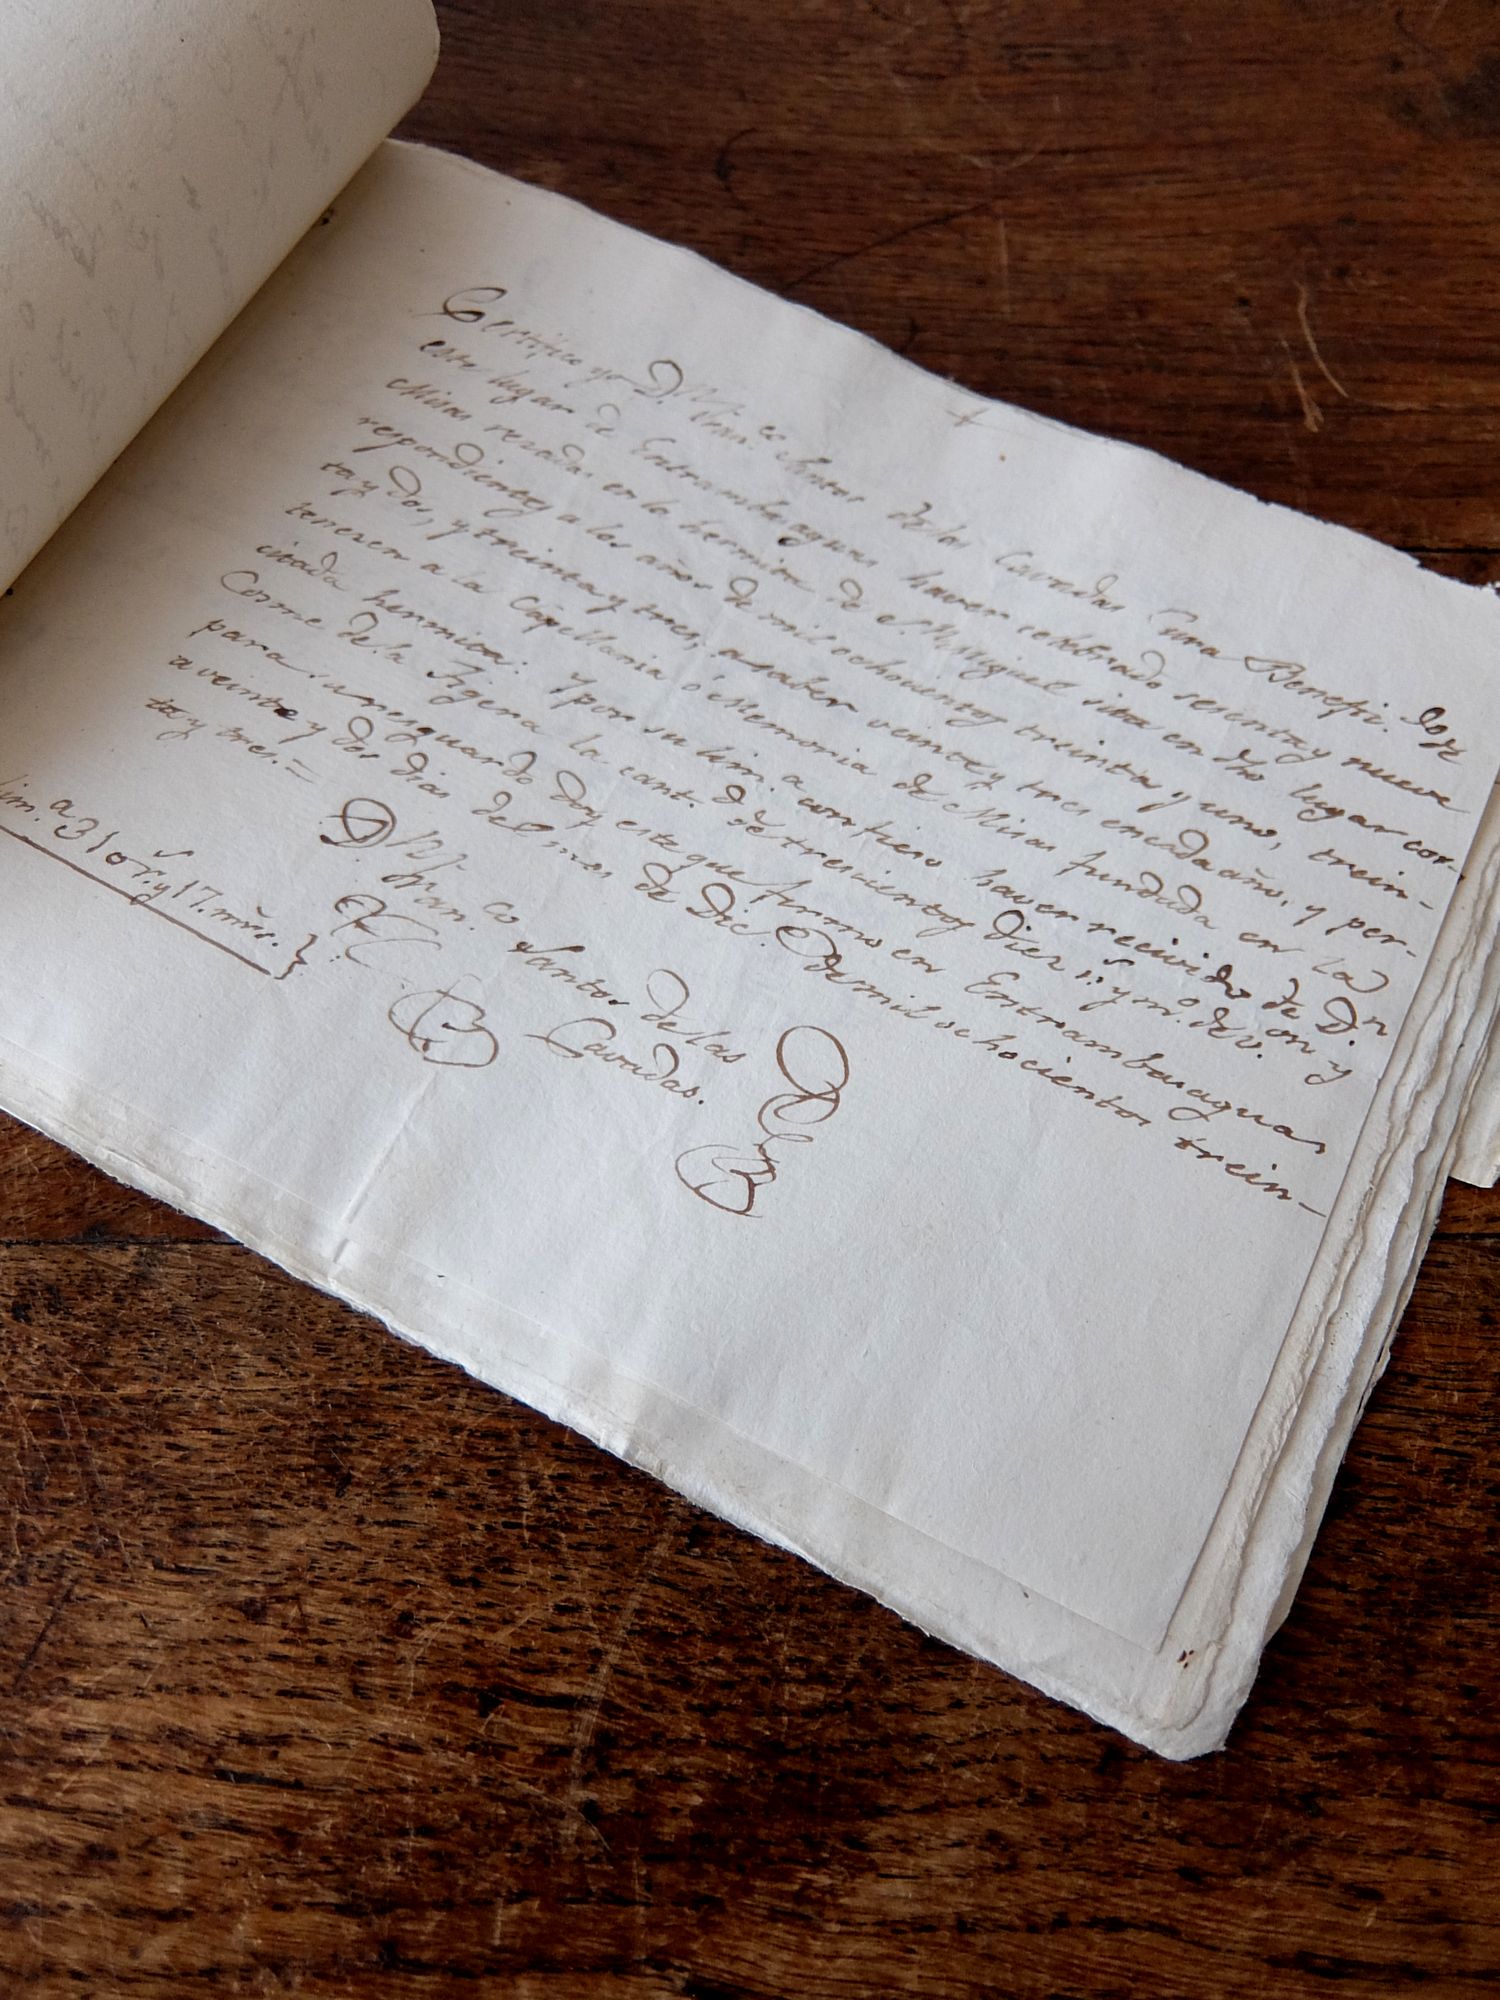 +
Certifico yo D. Fran.co Santos de las Cavadas Cura Benefi.do de
este lugar de Entrambasaguas haver celebrado sesenta y nueve
Misas rezadas en la hermita de S. Miguel sita en dho lugar cor-
respondientes a los años de mil ochocientos treinta y uno, trein-
ta y dos, y treinta y tres, a saber veinte y tres en cada año, y per-
tenecen a la Capellania ó Memoria de Misas fundada en la
citada hermita: Y por su lim.a confieso haver recivido de D.n
Cosme de la Figera la cant.d de trescientos diez rr.s y mrs. de v.on y
para su resguardo doy este que firmo en Entrambasaguas
a veinte y dos dias del mes de Dic.e de mil ochocientos trein-
ta y tres.=
D. Fran.co Santos de las
Cavadas.
lim.a 310 r.s y 17. mrs. }